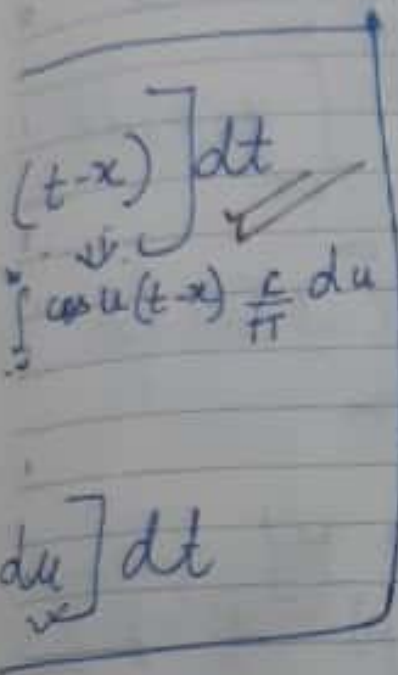 (t-x)] dt
∫ cos u(t-x) c/π du
du] dt